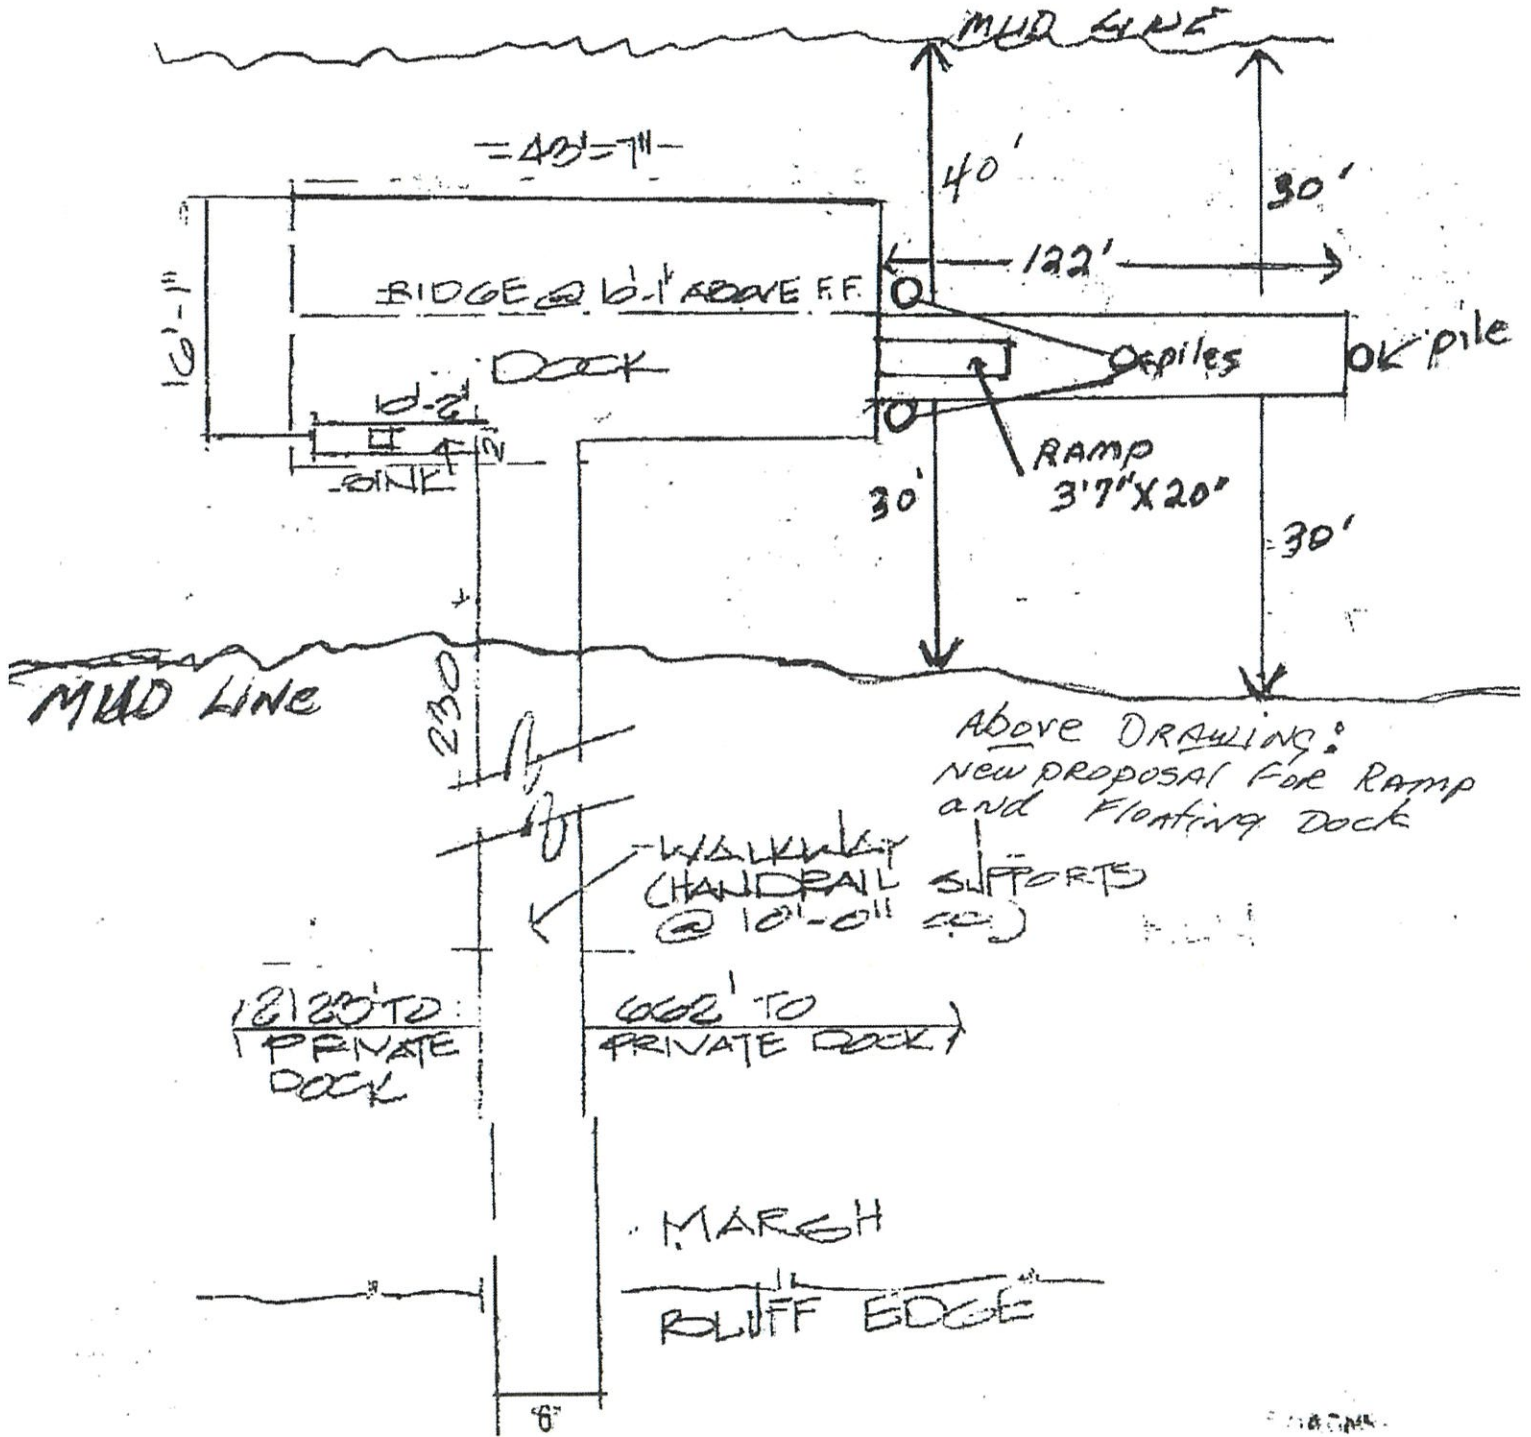 MUD LINE
=43'=7"-
40'
30'
122'
16'-1"
RIDGE @ 10'-1" ABOVE F.F.
DOCK
piles
pile
10'-2"
2'
SINK
RAMP
3'7"X20"
30'
30'
MUD LINE
230
Above DRAWING:
NEW PROPOSAL FOR RAMP
and Floating Dock
WALKWAY
(HANDRAIL SUPPORTS
@ 10'-0" o.c.)
2123' TO
PRIVATE
DOCK
662' TO
PRIVATE DOCK
MARSH
BLUFF EDGE